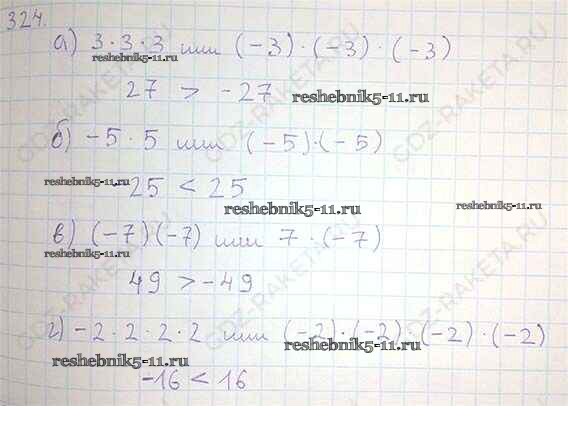 324.
а) 3·3·3 или (-3)·(-3)·(-3)
reshebnik5-11.ru
27 > -27 reshebnik5-11.ru
б) -5·5 или (-5)·(-5)
reshebnik5-11.ru -25 < 25
reshebnik5-11.ru
reshebnik5-11.ru
в) (-7)(-7) или 7·(-7)
reshebnik5-11.ru
49 > -49
г) -2·2·2·2 или (-2)·(-2)·(-2)·(-2)
reshebnik5-11.ru reshebnik5-11.ru
-16 < 16
GDZ-RAKETA.RU
GDZ-RAKETA.RU
GDZ-RAKETA.RU
GDZ-RAKETA.RU
GDZ-RAKETA.RU
GDZ-RAKETA.RU